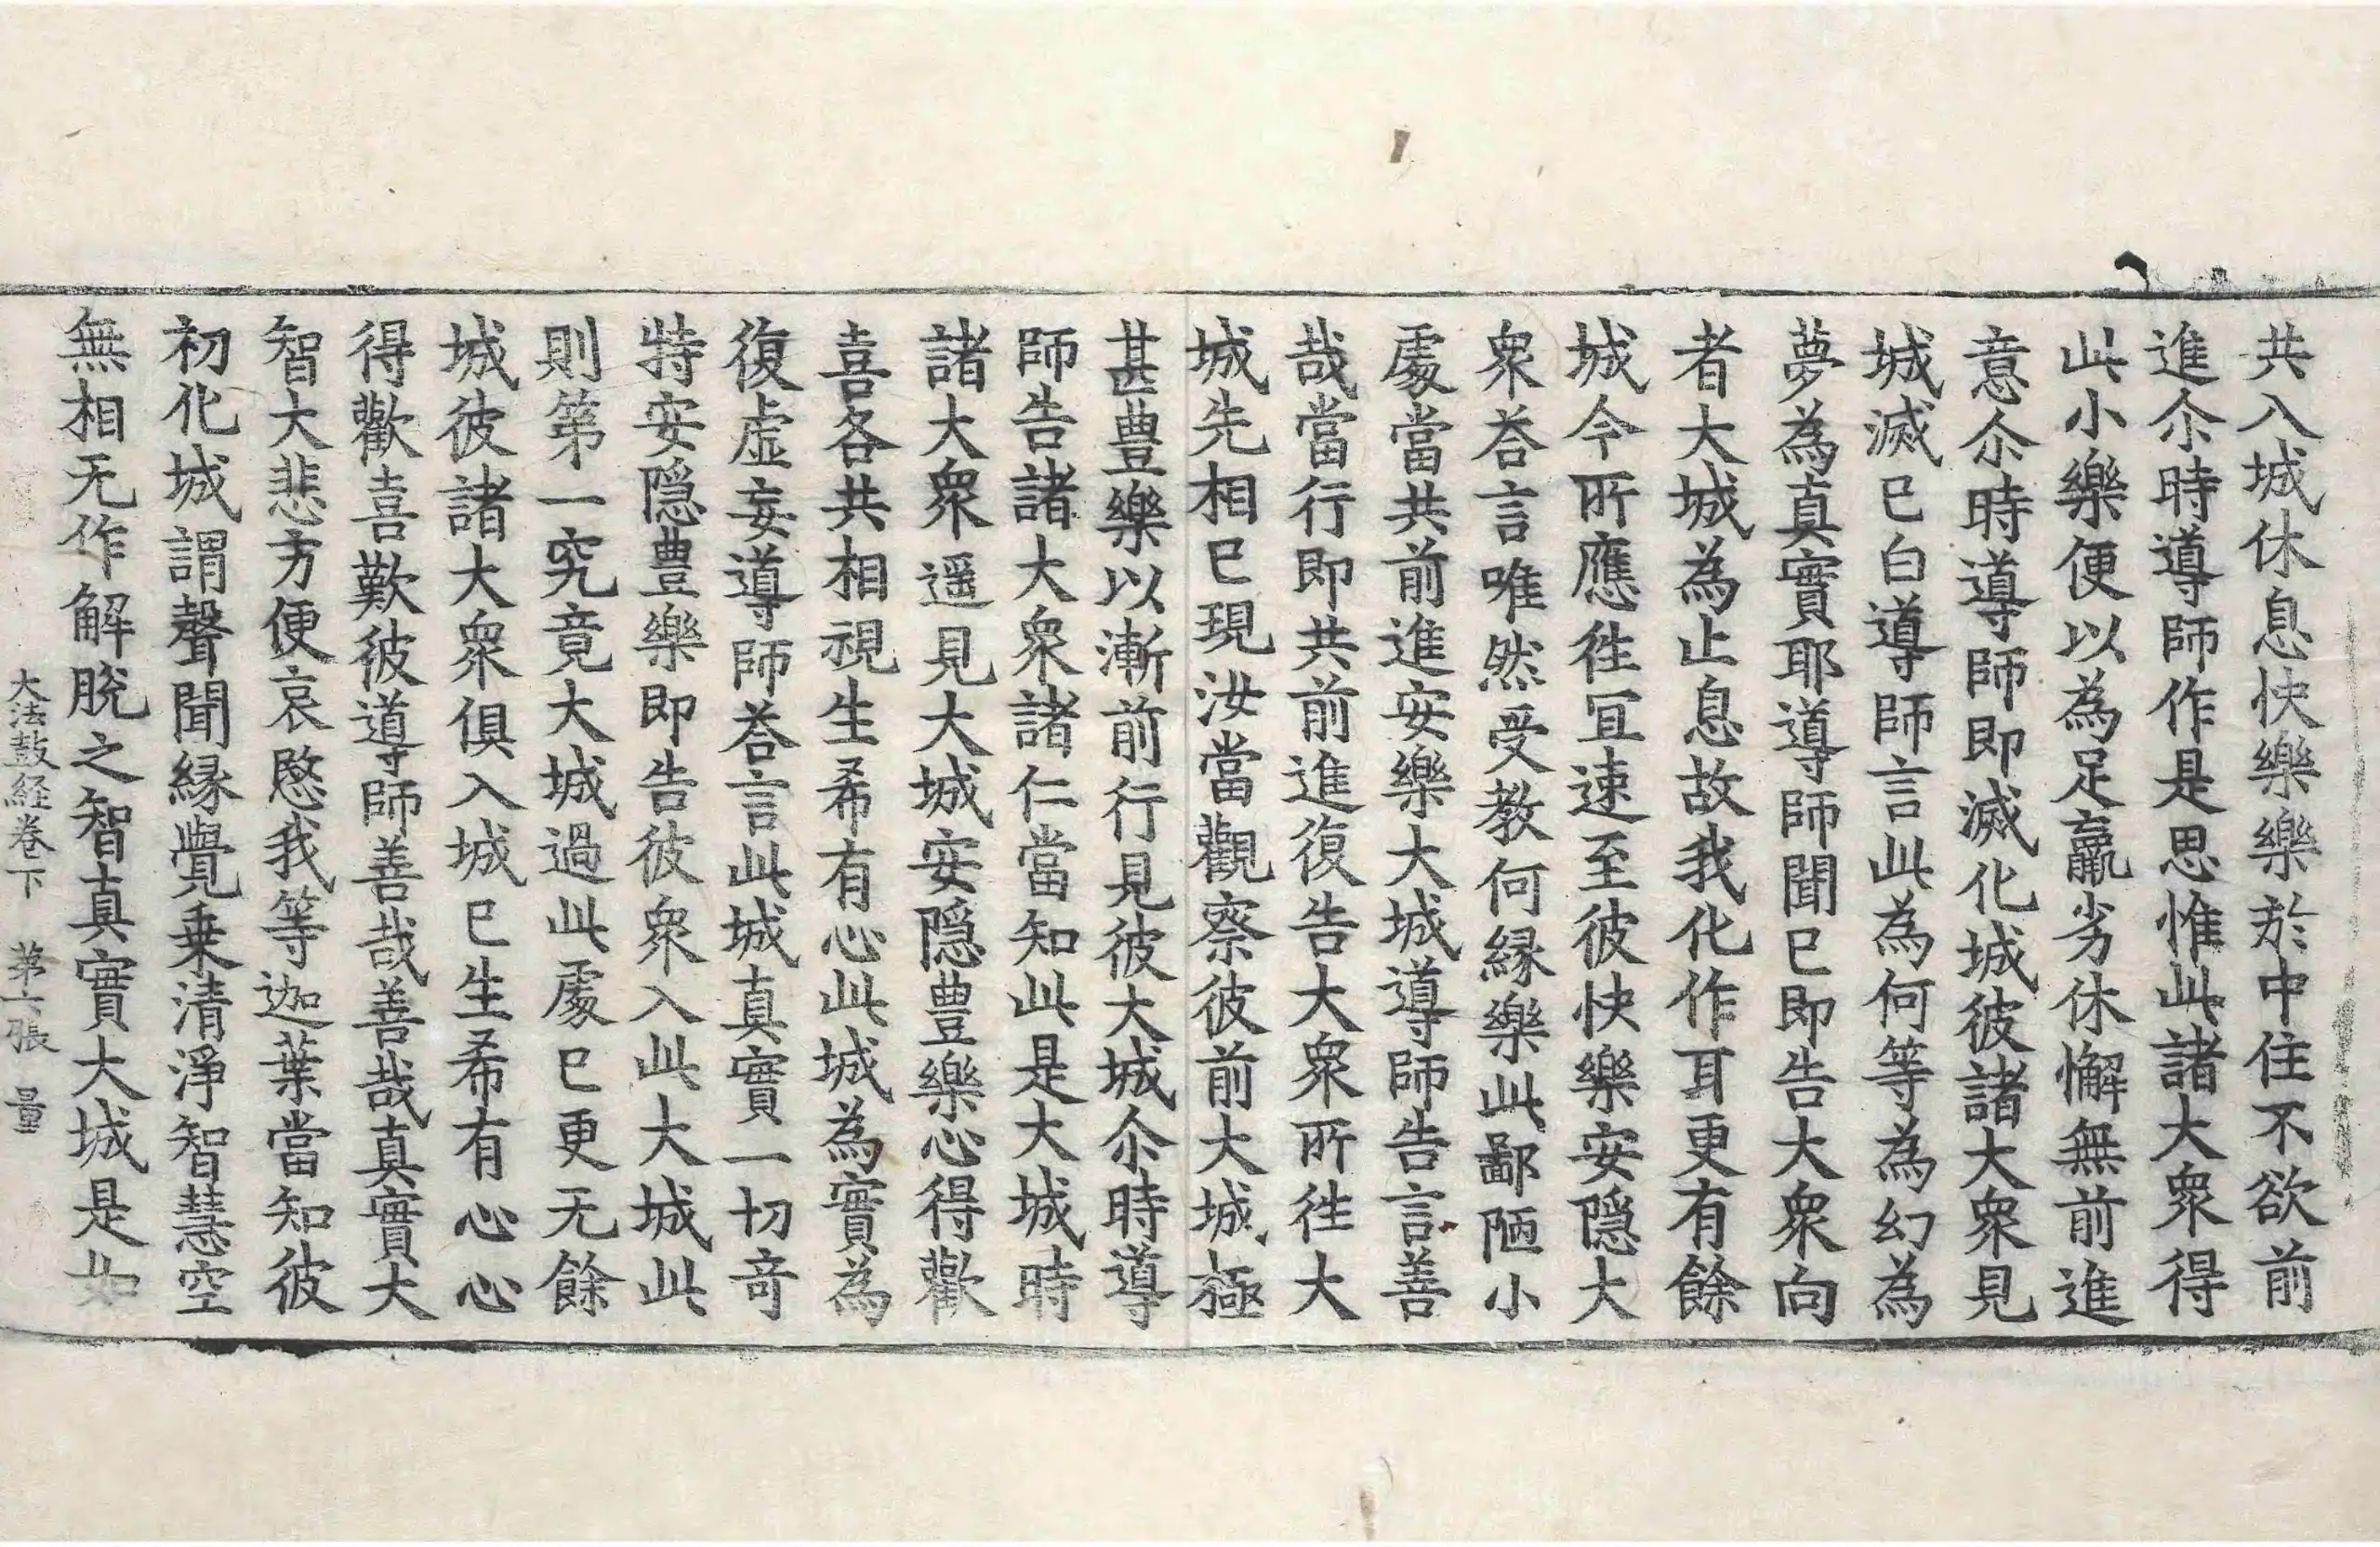 共入城休息快樂樂於中住不欲前
進尒時導師作是思惟此諸大衆得
此小樂便以為足羸劣休懈無前進
意尒時導師即滅化城彼諸大衆見
城滅已白導師言此為何等為幻為
夢為真實耶導師聞已即告大衆向
者大城為止息故我化作耳更有餘
城今所應徃冝速至彼快樂安隱大
衆荅言唯然受教何緣樂此鄙陋小
處當共前進安樂大城導師告言善
哉當行即共前進復告大衆所徃大
城先相已現汝當觀察彼前大城極
甚豊樂以漸前行見彼大城尒時導
師告諸大衆諸仁當知此是大城時
諸大衆遥見大城安隱豊樂心得歡
喜各共相視生希有心此城為實為
復虛妄導師荅言此城真實一切竒
特安隱豊樂即告彼衆入此大城此
則第一究竟大城過此處已更无餘
城彼諸大衆俱入城已生希有心心
得歡喜歎彼導師善哉善哉真實大
智大悲方便哀愍我等迦葉當知彼
初化城謂聲聞緣覺乗清淨智慧空
無相无作解脫之智真實大城是如
大法鼓経卷下　苐六張　量